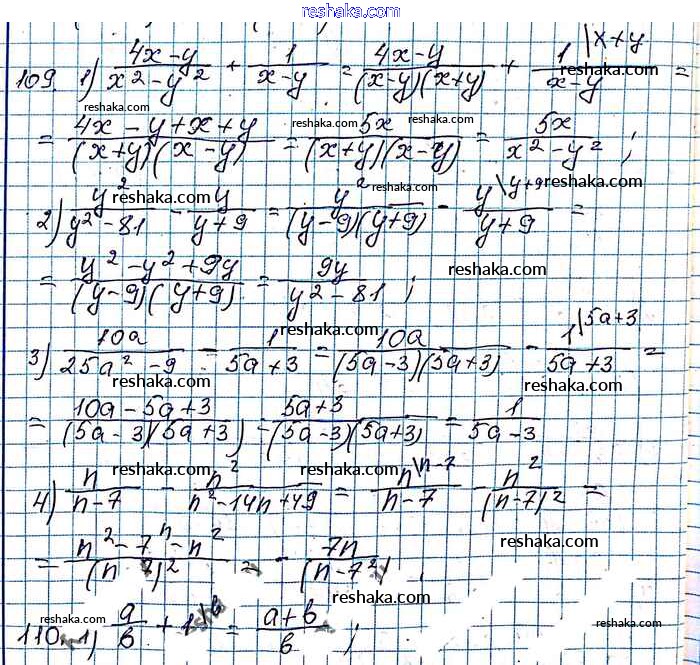 reshaka.com
109. 1) \frac{4x-y}{x^2-y^2} + \frac{1}{x-y} = \frac{4x-y}{(x-y)(x+y)} + \frac{1^{\backslash x+y}}{x-y} =
reshaka.com reshaka.com reshaka.com
= \frac{4x-y+x+y}{(x+y)(x-y)} = \frac{5x}{(x+y)(x-y)} = \frac{5x}{x^2-y^2};
reshaka.com reshaka.com reshaka.com
2) \frac{y^2}{y^2-81} - \frac{y}{y+9} = \frac{y^2}{(y-9)(y+9)} - \frac{y^{\backslash y+9}}{y+9} =
= \frac{y^2-y^2+9y}{(y-9)(y+9)} = \frac{9y}{y^2-81};
reshaka.com
reshaka.com reshaka.com reshaka.com
3) \frac{10a}{25a^2-9} - \frac{1}{5a+3} = \frac{10a}{(5a-3)(5a+3)} - \frac{1^{\backslash 5a+3}}{5a+3} =
reshaka.com
= \frac{10a-5a+3}{(5a-3)(5a+3)} - \frac{5a+3}{(5a-3)(5a+3)} = \frac{1}{5a-3}
reshaka.com reshaka.com reshaka.com
4) \frac{n}{n-7} - \frac{n^2}{n^2-14n+49} = \frac{n^{\backslash n-7}}{n-7} - \frac{n^2}{(n-7)^2} =
reshaka.com
= \frac{n^2-7n-n^2}{(n 7)^2} = -\frac{7n}{(n-7^2)};
reshaka.com
reshaka.com reshaka.com
110. 1) \frac{a}{b} + 1^{\backslash b} = \frac{(a+b}{b};
reshaka.com